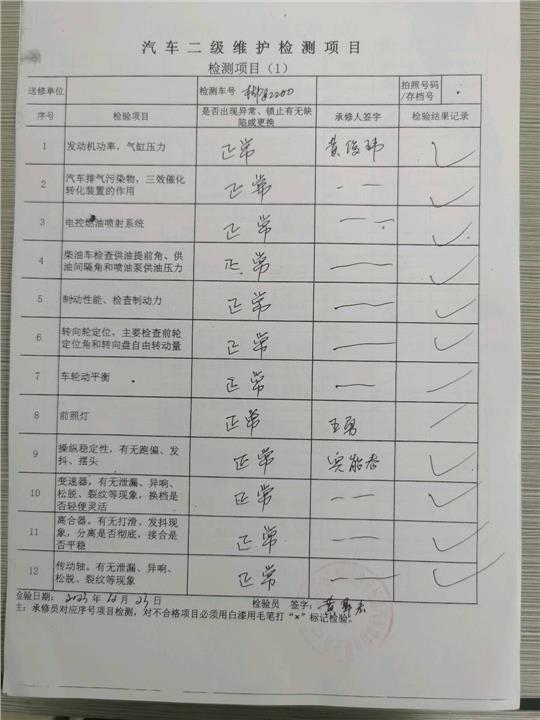 汽车二级维护检测项目
检测项目（1）
送修单位 检测车号 拍照号码/存档号
序号 检验项目 是否出现异常、锁止有无缺陷或更换 承修人签字 检验结果记录
1 发动机功率，气缸压力 正常 黄俊玮 ✓
2 汽车排气污染物，三效催化转化装置的作用 正常 — — ✓
3 电控燃油喷射系统 正常 — — ✓
4 柴油车检查供油提前角、供油间隔角和喷油泵供油压力 正常 — ✓
5 制动性能、检查制动力 正常 — ✓
6 转向轮定位，主要检查前轮定位角和转向盘自由转动量 正常 — ✓
7 车轮动平衡 正常 — ✓
8 前照灯 正常 王勇 ✓
9 操纵稳定性，有无跑偏、发抖、摆头 正常 ✓
10 变速器，有无泄漏、异响、松脱、裂纹等现象，换档是否轻便灵活 正常 — — ✓
11 离合器，有无打滑、发抖现象，分离是否彻底，接合是否平稳 正常 — — ✓
12 传动轴，有无泄漏、异响、松脱、裂纹等现象 正常 — — ✓
检验日期： 年12月23日 检验员 签字：
主：承修员对应序号项目检测，对不合格项目必须用白漆用毛笔打“×”标记检验。